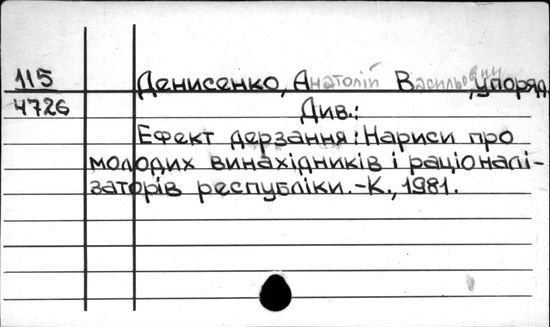 115 Денисенко, Анатолій Васильович, упоряд.
4726 Див.:
Ефект дерзання: Нариси про
молодих винахідників і раціоналі-
заторів республіки.-К., 1981.